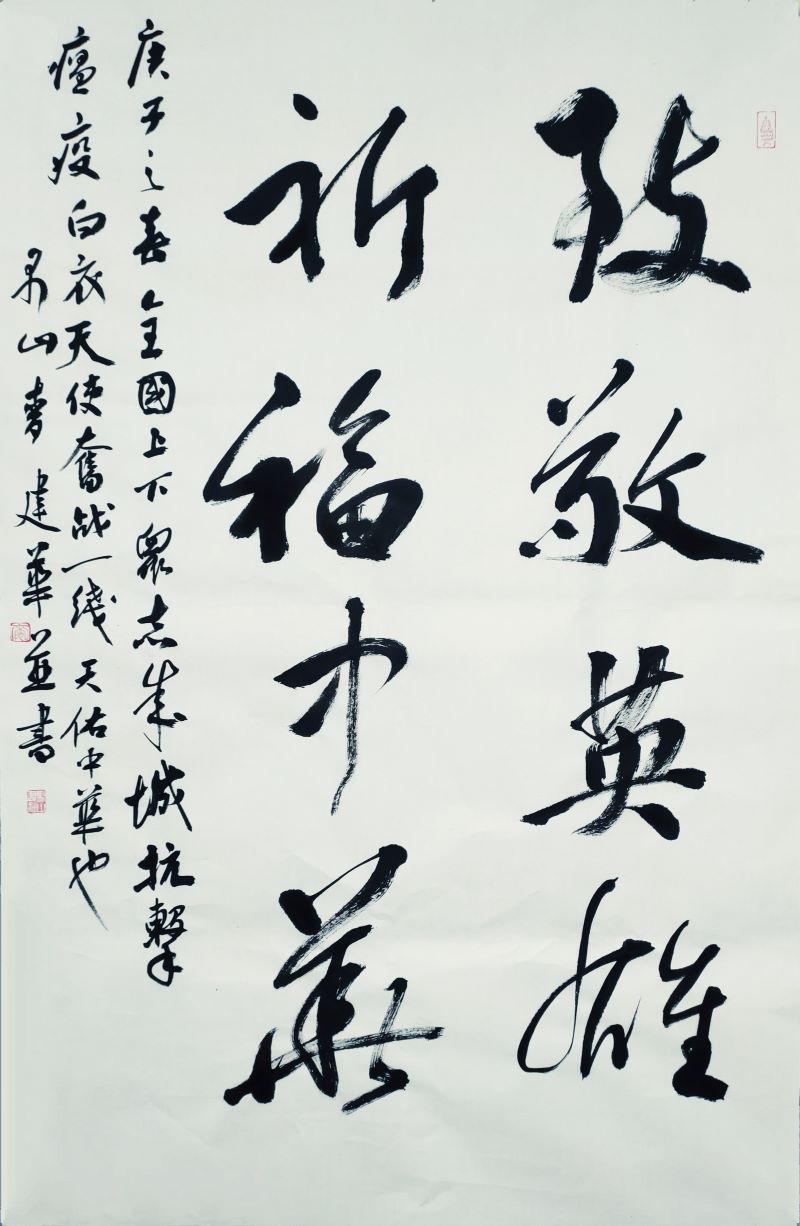 致敬英雄
祈福中華
庚子之春全國上下眾志成城抗擊
瘟疫白衣天使奮战一线天佑中華也
山 建華並書